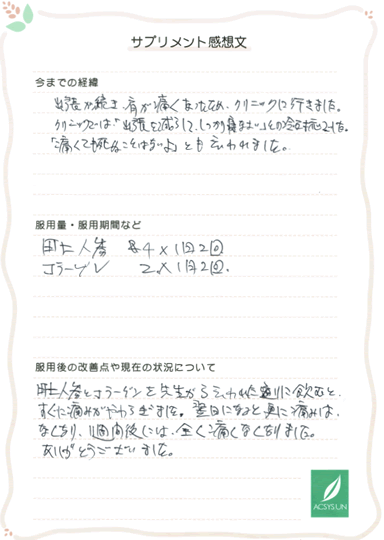 サプリメント感想文
今までの経緯
出張が続き、肩が痛くなったため、クリニックに行きました。
クリニックでは「出張を減らして、しっかり寝なさい」
「痛くても死ぬことはないよ」とも言われました。
服用量・服用期間など
田七人参 4×1日2回
コラーゲン 2×1日2回.
服用後の改善点や現在の状況について
田七人参とコラーゲンを先生から言われた通りに飲むと、
すぐに痛みがやわらぎました。翌日になると更に痛みは、
なくなり、1週間後には、全く痛くなくなりました。
ありがとうございました。
ACSYSUN